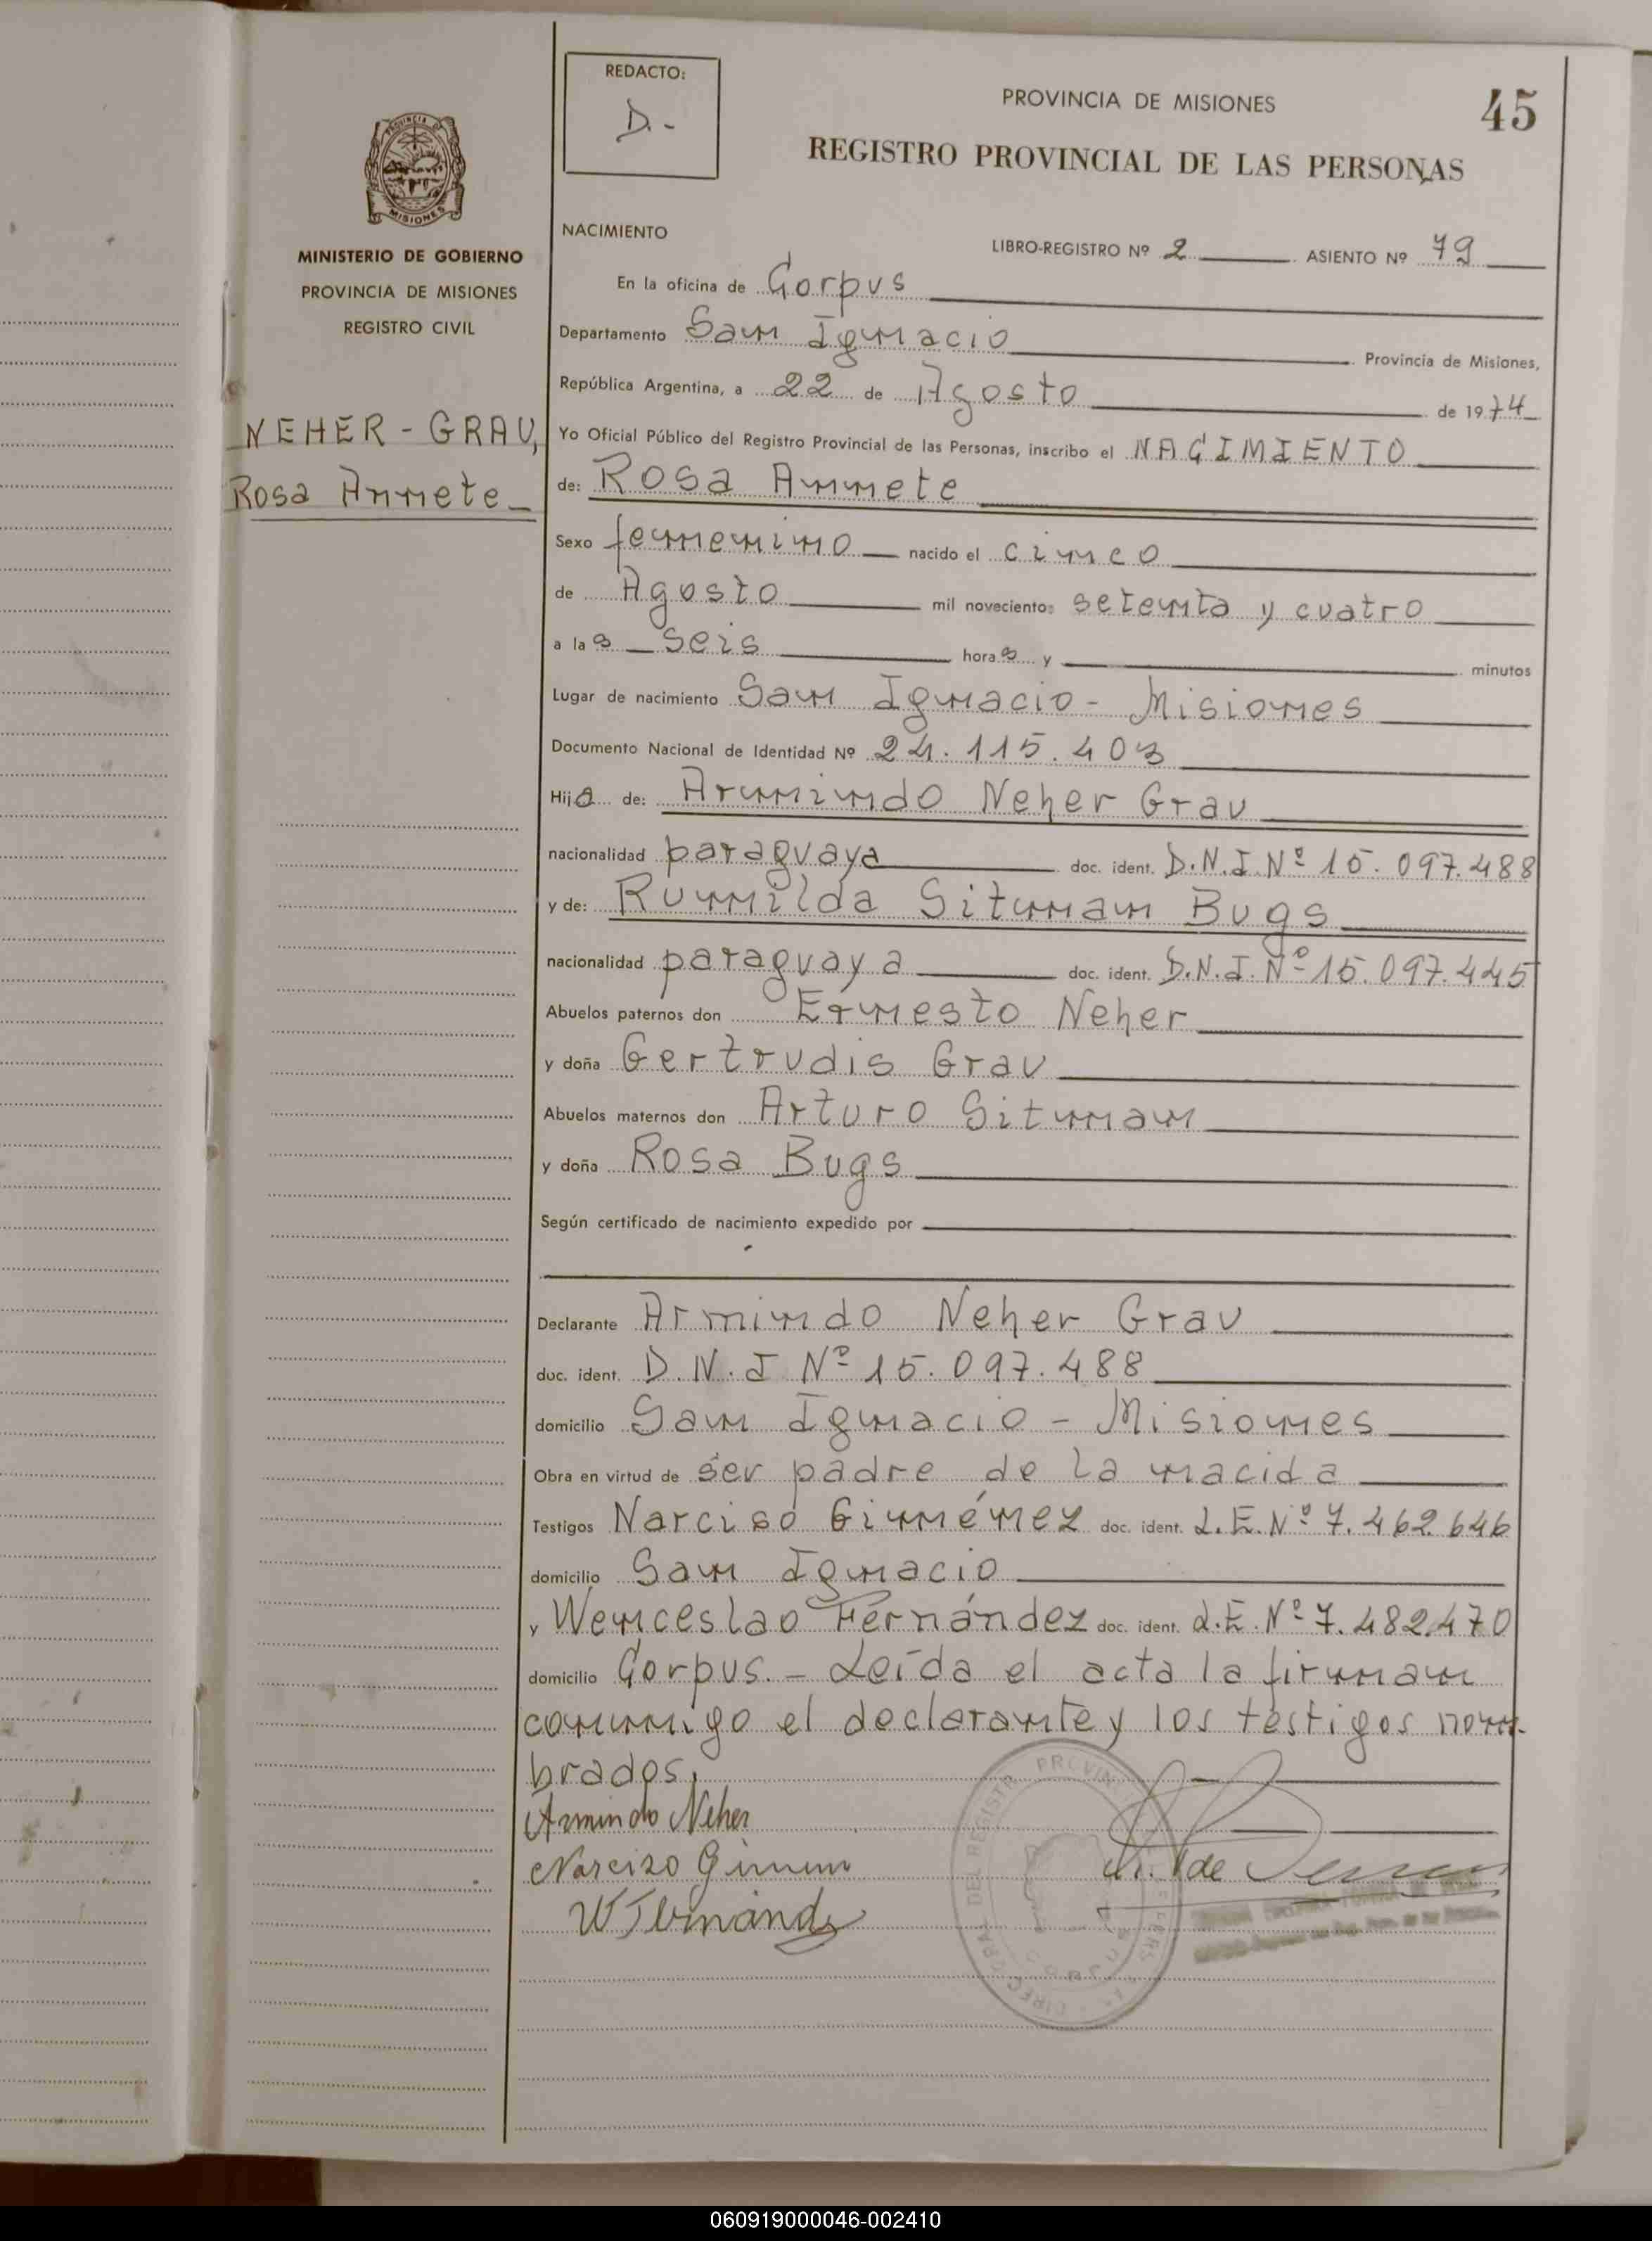 REDACTO:
D.-
PROVINCIA DE MISIONES
45
REGISTRO PROVINCIAL DE LAS PERSONAS
PROVINCIA DE
MISIONES
MINISTERIO DE GOBIERNO
PROVINCIA DE MISIONES
REGISTRO CIVIL
NEHER - GRAU,
Rosa Annete
NACIMIENTO
LIBRO-REGISTRO Nº 2 ASIENTO Nº 79
En la oficina de Corpus
Departamento San Ignacio Provincia de Misiones,
República Argentina, a 22 de Agosto de 1974
Yo Oficial Público del Registro Provincial de las Personas, inscribo el NACIMIENTO
de: Rosa Annete
Sexo femenino nacido el cinco
de Agosto mil novecientos setenta y cuatro
a las seis horas y minutos
Lugar de nacimiento San Ignacio - Misiones
Documento Nacional de Identidad Nº 24.115.403
Hija de: Armindo Neher Grau
nacionalidad paraguaya doc. ident. D.N.I. Nº 15.097.488
y de: Rumilda Sitman Bugs
nacionalidad paraguaya doc. ident. D.N.I. Nº 15.097.445
Abuelos paternos don Ernesto Neher
y doña Gertrudis Grau
Abuelos maternos don Arturo Sitman
y doña Rosa Bugs
Según certificado de nacimiento expedido por
Declarante Armindo Neher Grau
doc. ident. D.N.I Nº 15.097.488
domicilio San Ignacio - Misiones
Obra en virtud de ser padre de la nacida
Testigos Narciso Giménez doc. ident. L.E. Nº 7.462.646
domicilio San Ignacio
y Wenceslao Fernández doc. ident. L.E. Nº 7.482.470
domicilio Corpus. - Leída el acta la firman
conmigo el declarante y los testigos nom-
brados.
Armindo Neher
Narciso Gimene
W Fernández
060919000046-002410